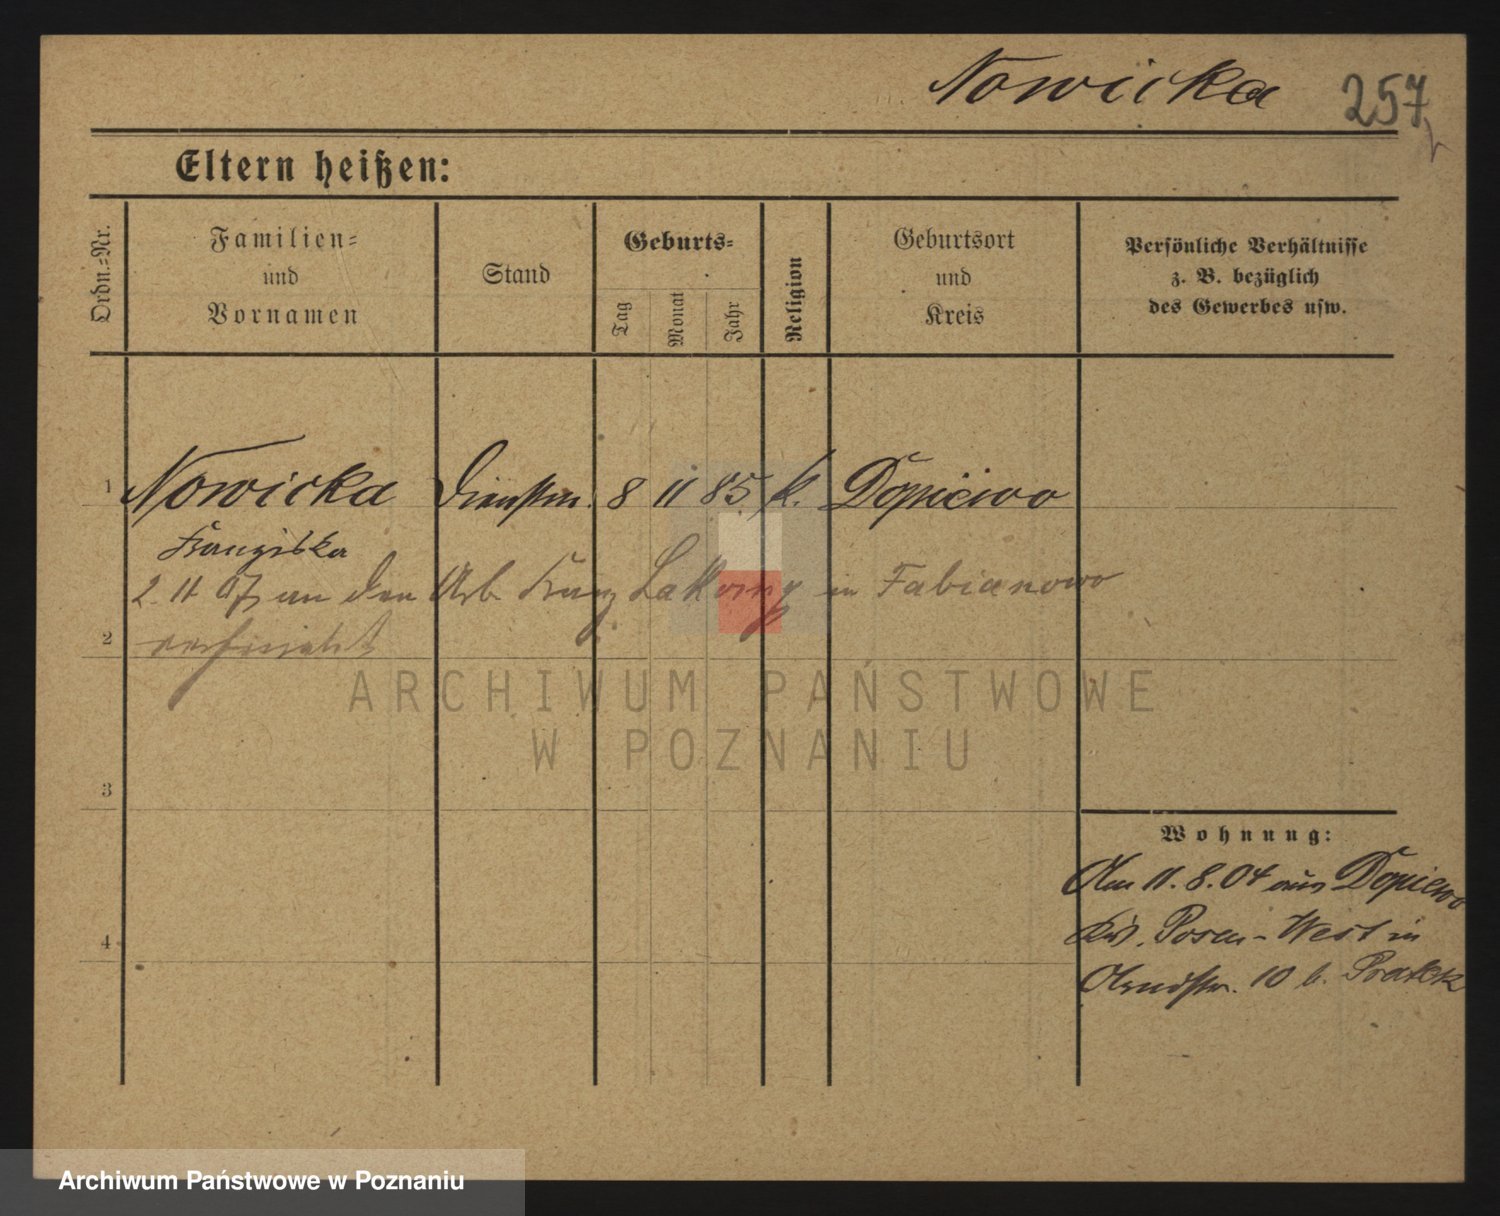 Nowicka 257
Eltern heißen:
Ordn.=Nr.
Familien=
und
Vornamen
Stand
Geburts=
Tag
Monat
Jahr
Religion
Geburtsort
und
Kreis
Persönliche Verhältnisse
z. B. bezüglich
des Gewerbes usw.
1 Nowicka Dienstm. 8 11 85 k. Dopiewo
Franziska
2. 11 07 an den Arb. Franz in Fabianowo
2 verheirathet
ARCHIWUM PAŃSTWOWE
W POZNANIU
3
Wohnung:
Am 11. 8. 04 aus Dopiewo
Krs. Posen-West in
10 b.
4
Archiwum Państwowe w Poznaniu